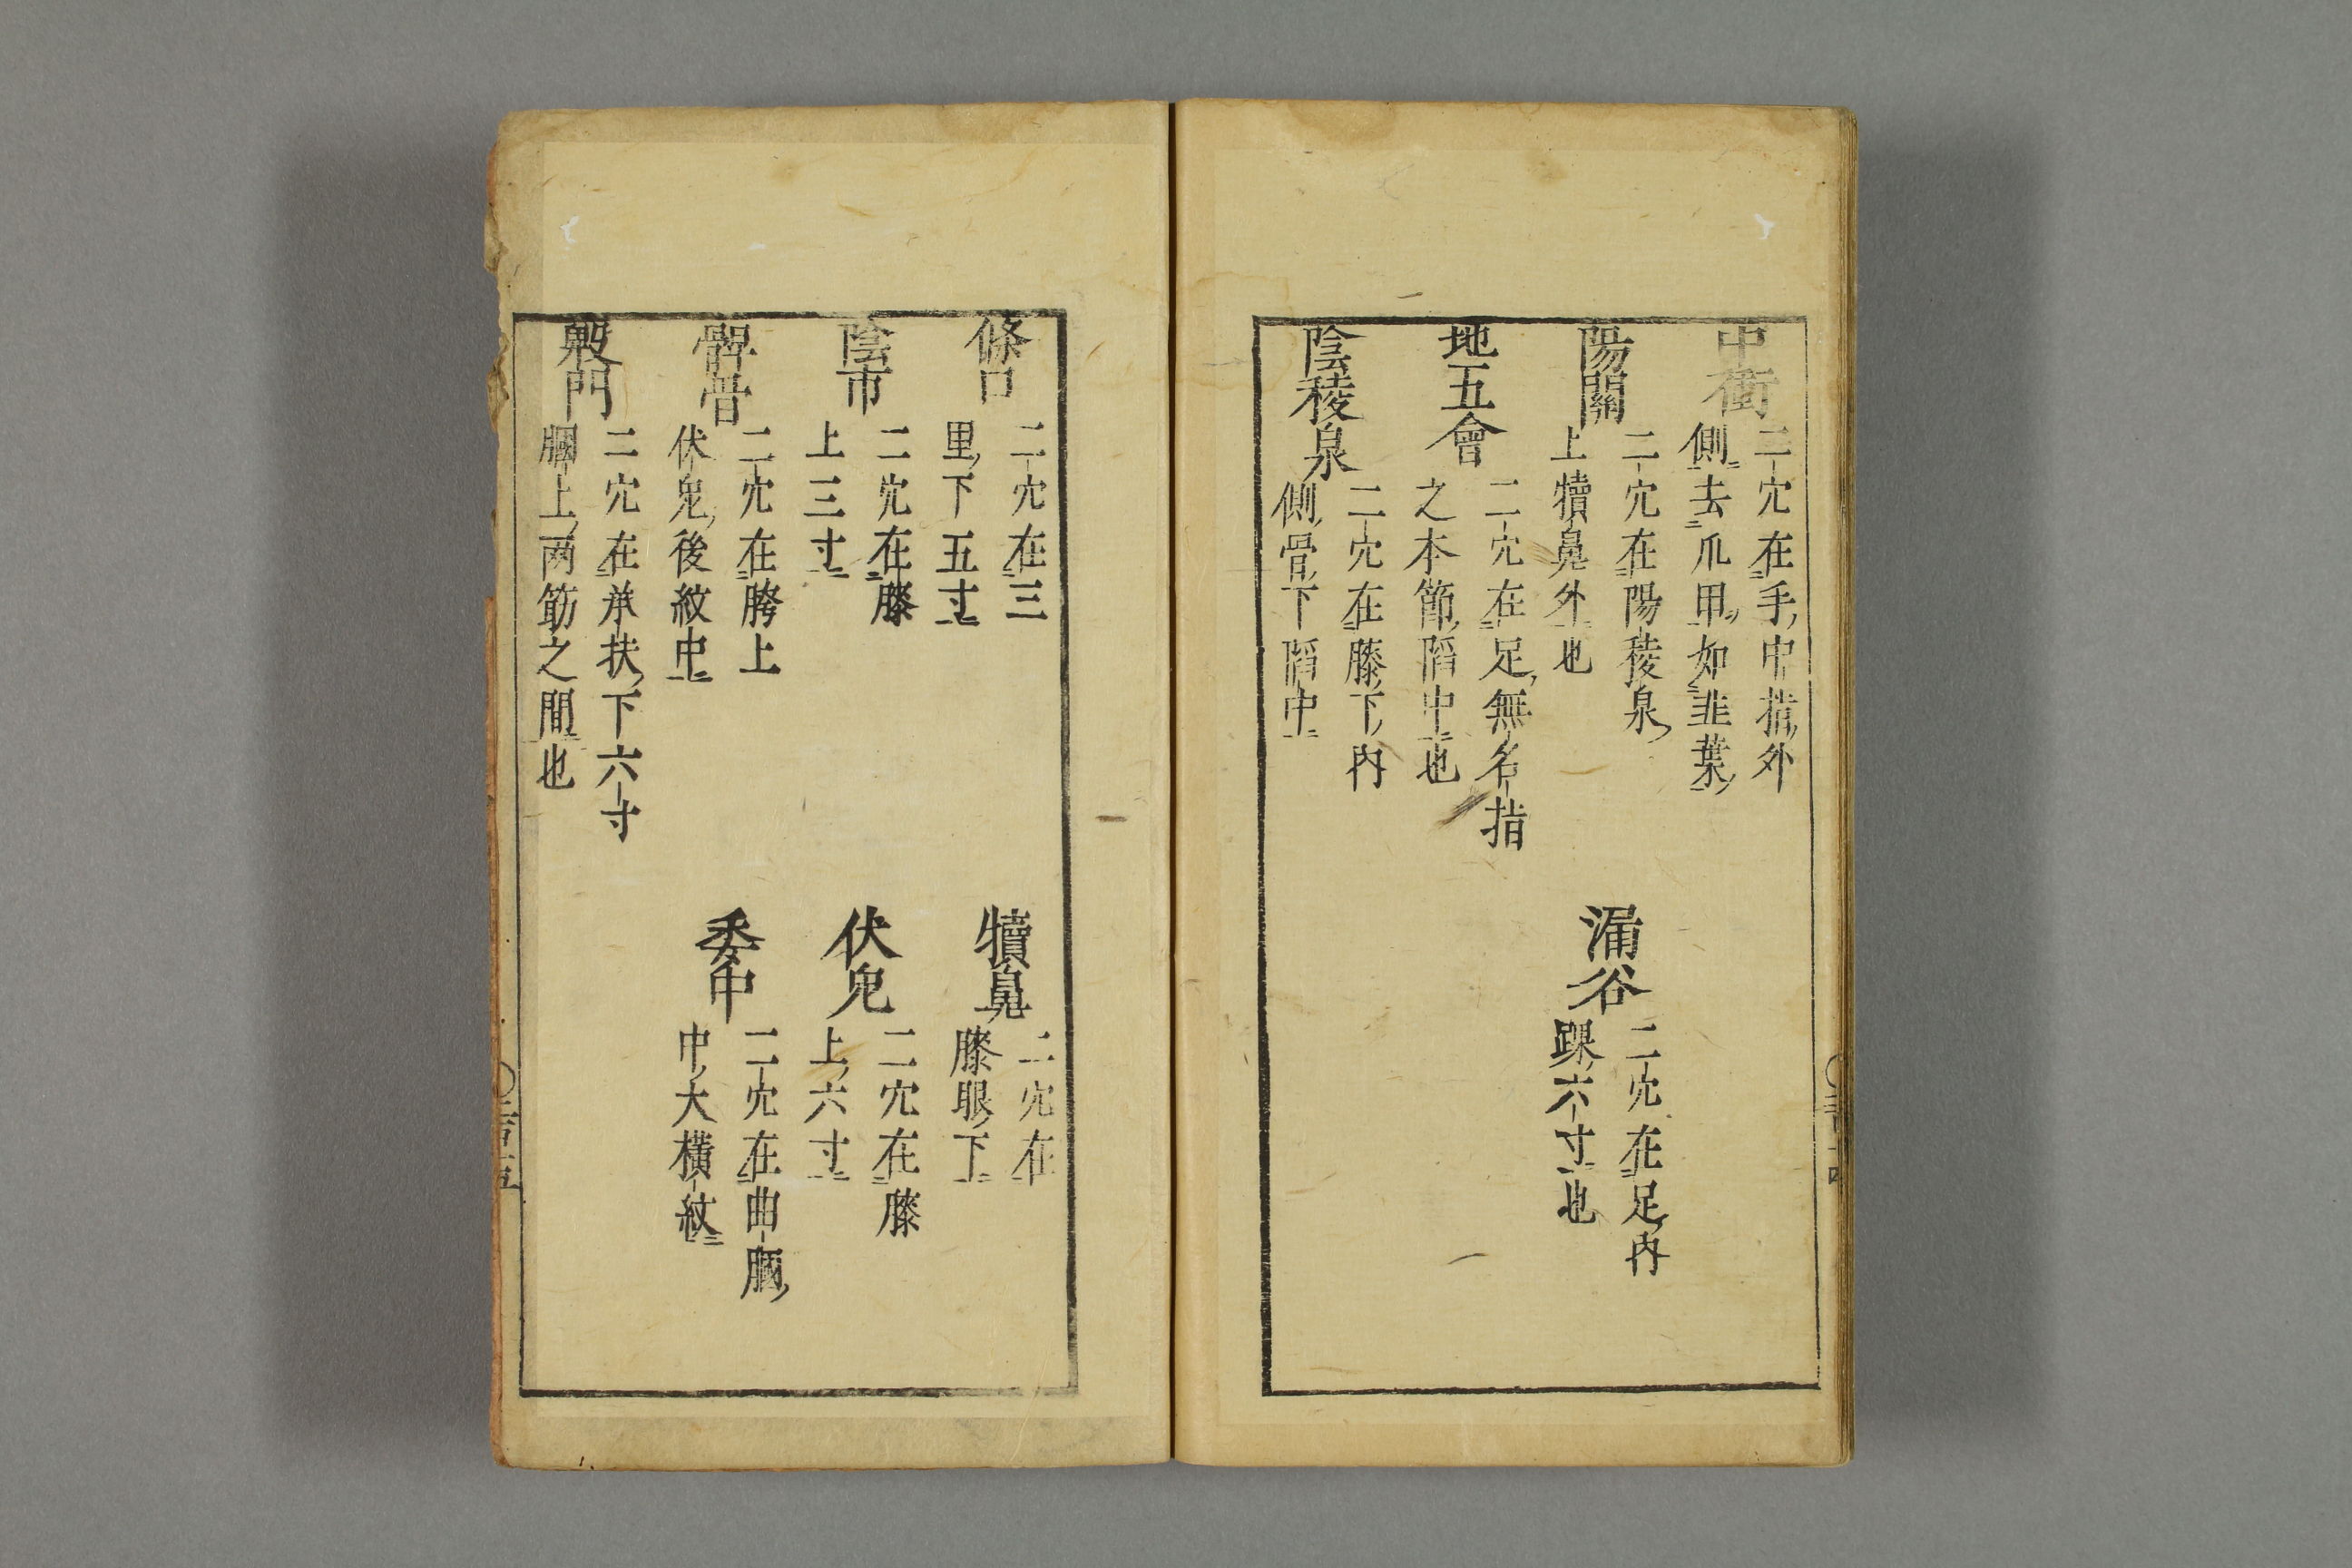 中衝
二穴在手中指外
側去爪甲如韭葉
陽關
二穴在陽稜泉
上犢鼻外也
漏谷
二穴在足内
踝六寸也
地五會
二穴在足無名指
之本節陷中也
陰稜泉
二穴在膝下内
側骨下陷中
條口
二穴在三
里下五寸
犢鼻
二穴在
膝眼下
陰市
二穴在膝
上三寸
伏兔
二穴在膝
上六寸
髀骨
二穴在胯上
伏兔後紋中
委中
二穴在曲膕
中大橫紋
殷門
二穴在承扶下六寸
膕上两筯之間也